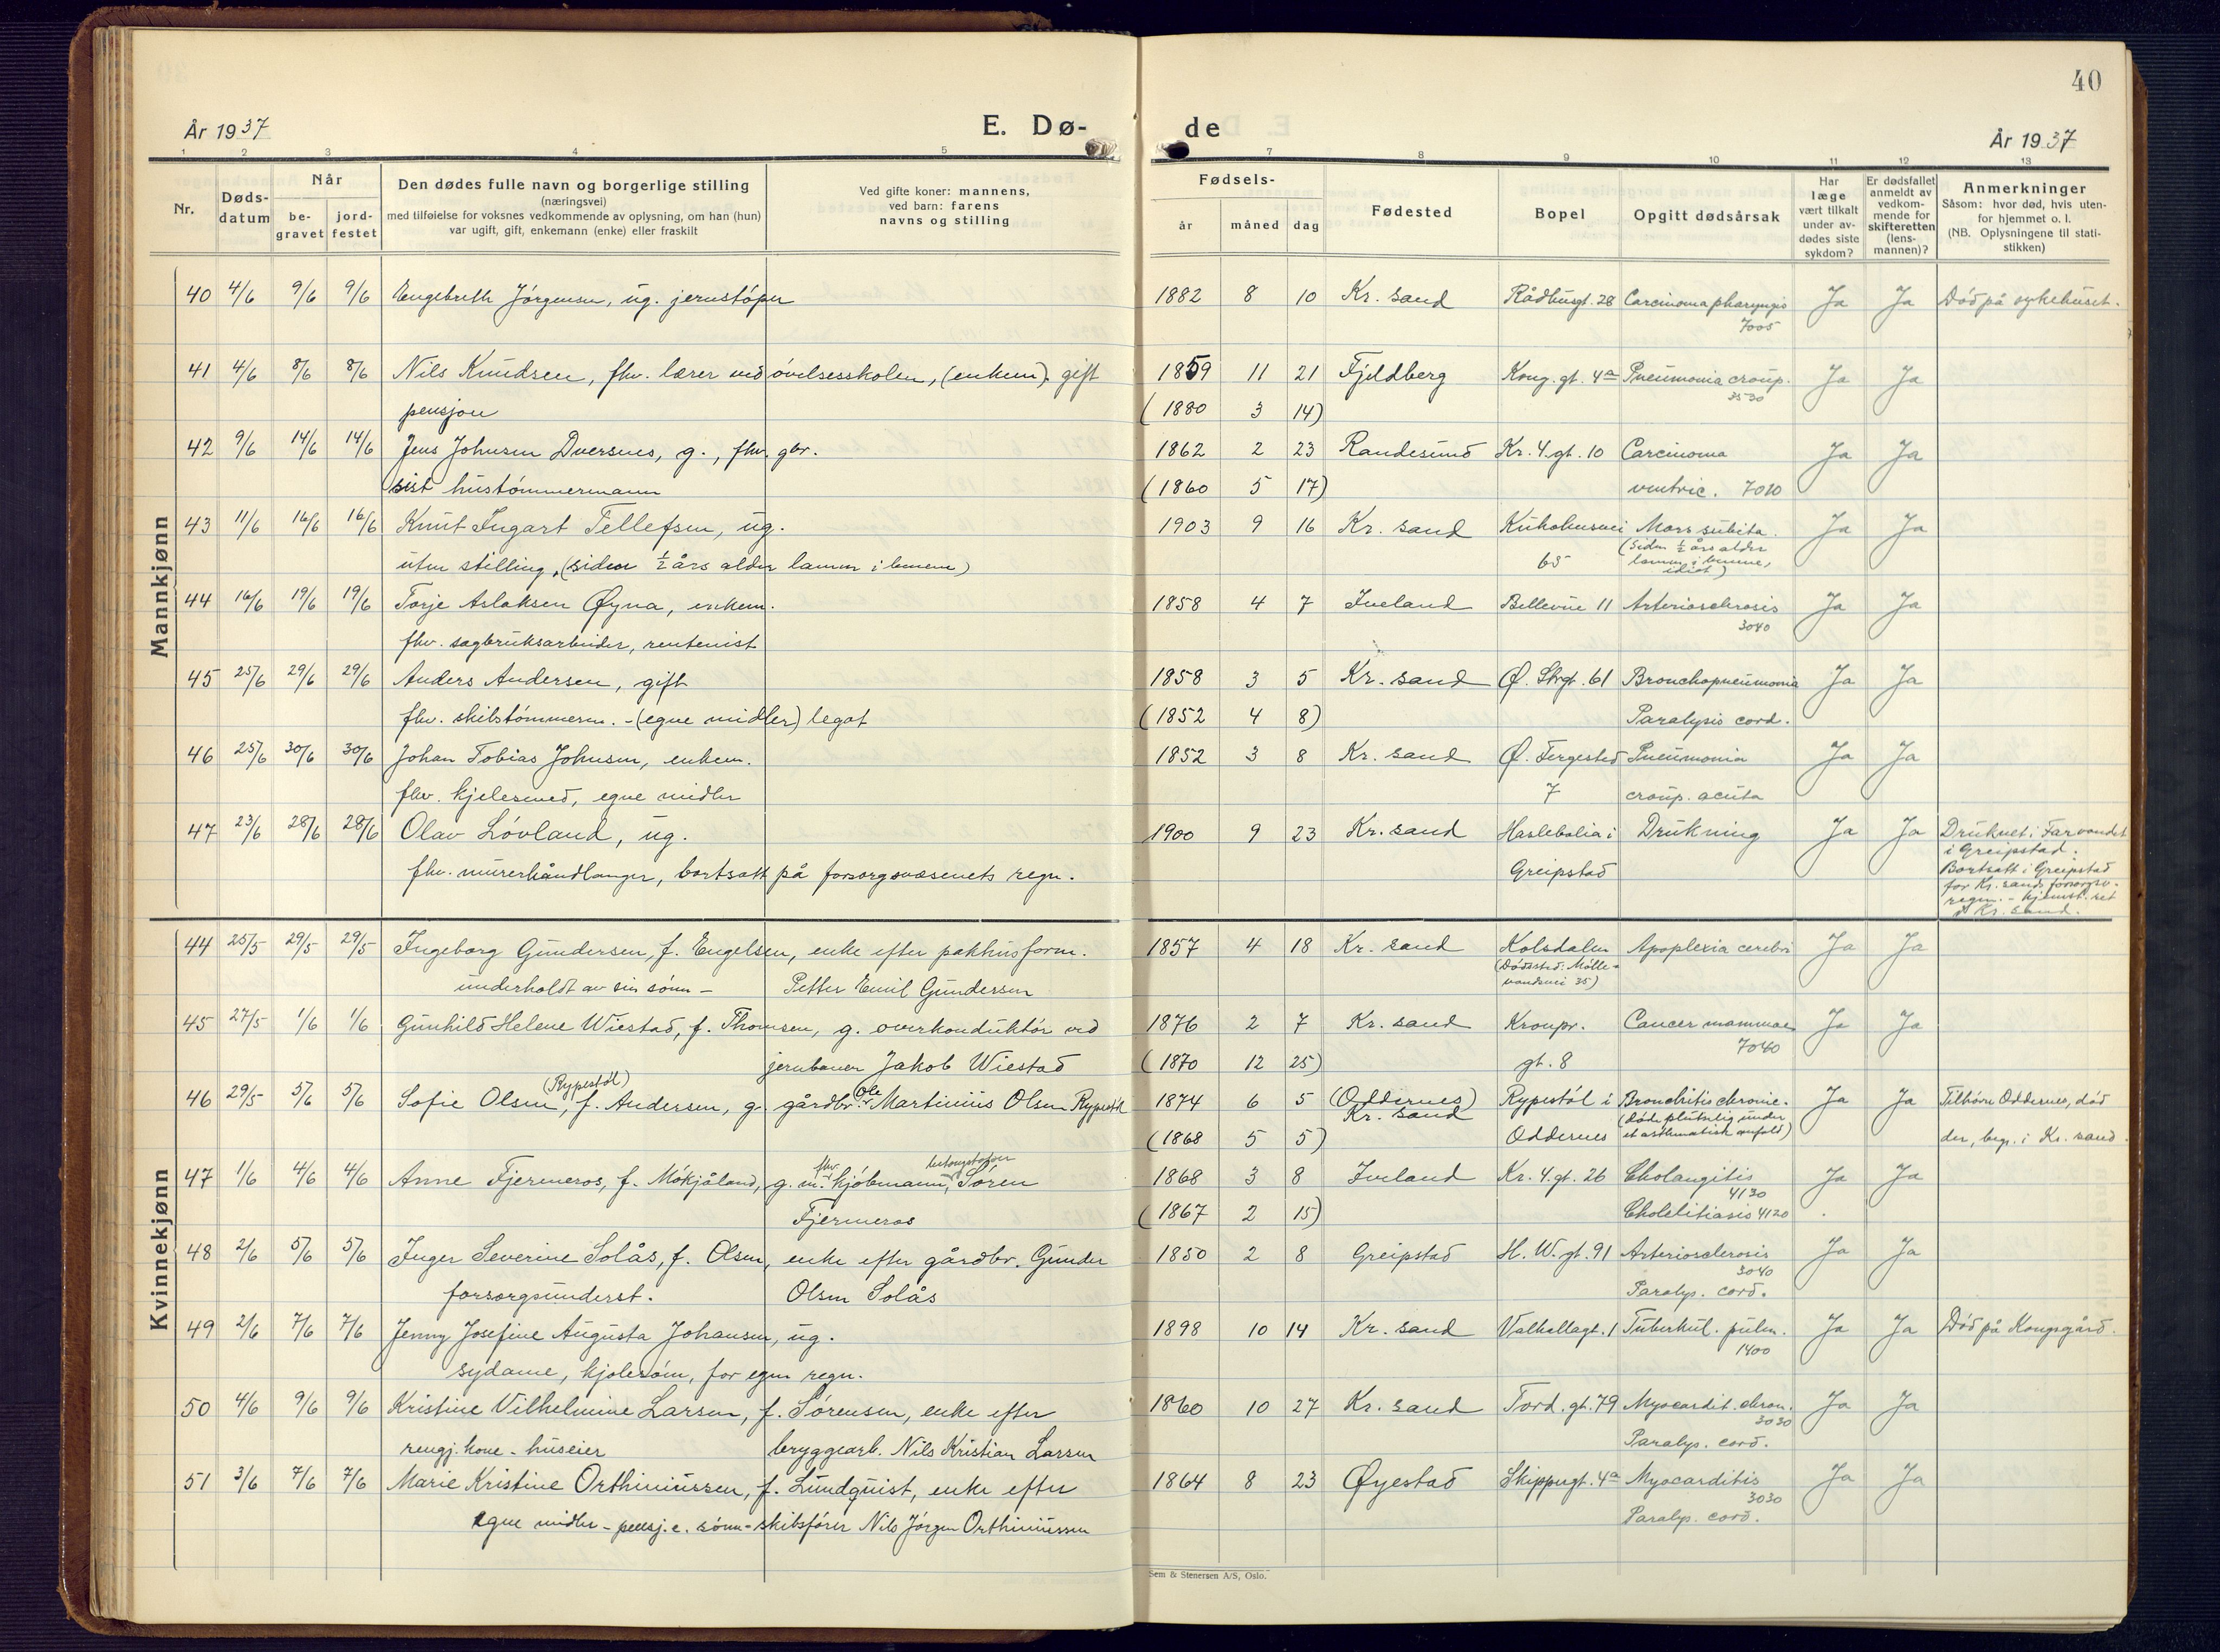 40
År 1937
E. Dø-
de
År 1937
1 2 3 4 5
7 8 9 10 11 12 13
Nr.
Døds-
datum
Når
be-
gravet
jord-
festet
Den dødes fulle navn og borgerlige stilling
(næringsvei)
med tilføielse for voksnes vedkommende av oplysning, om han (hun)
var ugift, gift, enkemann (enke) eller fraskilt
Ved gifte koner: mannens,
ved barn: farens
navns og stilling
Fødsels-
år måned dag
Fødested
Bopel
Opgitt dødsårsak
Har
læge
vært tilkalt
under av-
dødes siste
sykdom?
Er dødsfallet
anmeldt av
vedkom-
mende for
skifteretten
(lens-
mannen)?
Anmerkninger
Såsom: hvor død, hvis uten-
for hjemmet o. l.
(NB. Oplysningene til stati-
stikken)
Mannkjønn
40 4/6 9/6 9/6 Engebreth Jörgensen, ug. jernstöper 1882 8 10 Kr. sand Rådhusgt. 28 Carcinoma pharyngis Ja Ja Död på sykehuset.
7005
41 4/6 8/6 8/6 Nils Knudsen, fhv. lærer ved övelsesskolen, (enkem). gift 1859 11 21 Fjeldberg Kong. gt. 4a Pneumonia croup. Ja Ja
3530
pensjon (1880 3 14)
42 9/6 14/6 14/6 Jens Johnsen Dversnes, g., fhv. gbr. 1862 2 23 Randesund Kr. 4. gt. 10 Carcinoma Ja Ja
sist hustömmermann (1860 5 17) ventric. 7010
43 11/6 16/6 16/6 Knut Ingart Tellefsen, ug. 1903 9 16 Kr. sand Kuholmsvei Mors subita. Ja Ja
uten stilling, (siden ½ års alder lammen i benene) 65 (siden ½ års alder
lammen i benene,
idiot)
44 16/6 19/6 19/6 Torje Aslaksen Øyna, enkem. 1858 4 7 Iveland Bellevue 11 Arteriosclerosis Ja Ja
3040
fhv. sagbruksarbeider, rentenist
45 25/6 29/6 29/6 Anders Andersen, gift 1858 3 5 Kr. sand Ø. Strgt. 61 Bronchopneumonia Ja Ja
fhv. skibstömmerm. - (egne midler) legat (1852 4 8) Paralysis cord.
46 25/6 30/6 30/6 Johan Tobias Johnsen, enkem. 1852 3 8 Kr. sand Ø. Tergested Pneumonia Ja Ja
fhv. kjelesmed, egne midler 7 croup. acuta
47 23/6 28/6 28/6 Olav Lövland, ug. 1900 9 23 Kr. sand Haslebalia i Drukning Ja Ja Druknet i Farvandet
i Greipstad.
fhv. murerhåndlanger, bortsatt på forsorgsvæsenets regn. Greipstad Bortsatt i Greipstad
for Kr. sands forsorgsv.
regn. - hjemst. ret
Kr. sand.
Kvinnekjønn
44 25/5 29/5 29/5 Ingeborg Gundersen, f. Engelsen, enke efter pakhusform. 1857 4 18 Kr. sand Kolsdalen Apoplexia cerebri Ja Ja
underholdt av sin sönn - Petter Emil Gundersen (Dödssted: Mölle-
vandsvei 35)
45 27/5 1/6 1/6 Gunhild Helene Wiestad, f. Thomsen, g. overkonduktör ved 1876 2 7 Kr. sand Kronpr. Cancer mammae Ja Ja
7040
jernbanen Jakob Wiestad (1870 12 25) gt. 8
46 29/5 5/6 5/6 Sofie Olsen (Rypestöl), f. Andersen, g. gårdbr. Ole Martinius Olsen Rypestöl 1874 6 5 (Oddernes) Kr. sand Rypestöl i Bronchitis chronic. Ja Ja Tilhörer Oddernes, död
(1868 5 5) Oddernes (döde plutselig under
et asthmatisk anfald) der, begr. i Kr. sand.
47 1/6 4/6 4/6 Anne Fjermeros, f. Mökjåland, g. m. fhv. kjöbmann, Sören 1868 3 8 Iveland Kr. 4. gt. 26 Cholangitis Ja Ja
4130
Fjermeros (1867 2 15) Cholelitiasis 4120
48 2/6 5/6 5/6 Inger Severine Solås, f. Olsen, enke efter gårdbr. Gunder 1850 2 8 Greipstad H. W. gt. 91 Arteriosclerosis Ja Ja
3040
forsorgsunderst. Olsen Solås Paralys. cord.
49 2/6 7/6 7/6 Jenny Josefine Augusta Johansen, ug. 1898 10 14 Kr. sand Valhallagt. 1 Tuberkul. pulm. Ja Ja Död på Kongsgård.
1400
sydame, kjolesöm, for egen regn.
50 4/6 9/6 9/6 Kristine Vilhelmine Larsen, f. Sörensen, enke efter 1860 10 27 Kr. sand Tord. gt. 79 Myocardit. chron. Ja Ja
3030
rengj. kone - huseier bryggearb. Nils Kristian Larsen Paralys. cord.
51 3/6 7/6 7/6 Marie Kristine Orthiniussen, f. Lundquist, enke efter 1864 8 23 Øyestad Skippergt. 4a Myocarditis Ja Ja
3030
egne midler - pensj. e. sönn - skibsförer Nils Jörgen Orthiniussen Paralys. cord.
Sem & Stenersen A/S, Oslo.